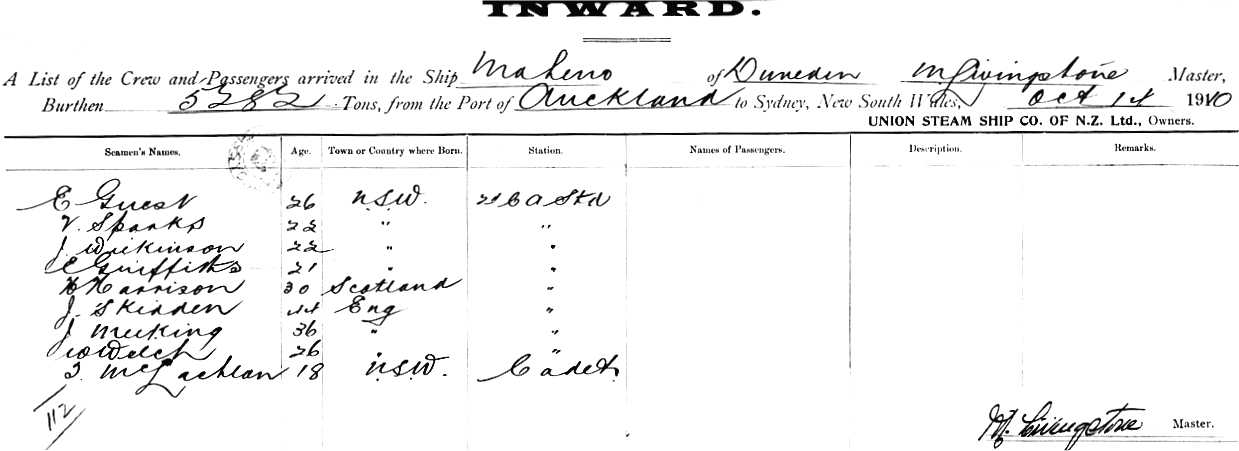 INWARD.
A List of the Crew and Passengers arrived in the Ship Maheno of Dunedin M Livingstone Master,
Burthen 5282 Tons, from the Port of Auckland to Sydney, New South Wales, Oct 14 1910
UNION STEAM SHIP CO. OF N.Z. Ltd., Owners.
Seamen's Names. Age. Town or Country where Born. Station. Names of Passengers. Description. Remarks.
E Guest 26 N.S.W. 2nd Cl Std
V. Sparks 22 " "
J. Wilkinson 22 " "
E Griffiths 21 " "
H Harrison 30 Scotland "
J. Skidden 44 Eng "
J Meeking 36 " "
W Welch 26 " "
J. McLachlan 18 N.S.W. Cadet
112
M. Livingstone Master.